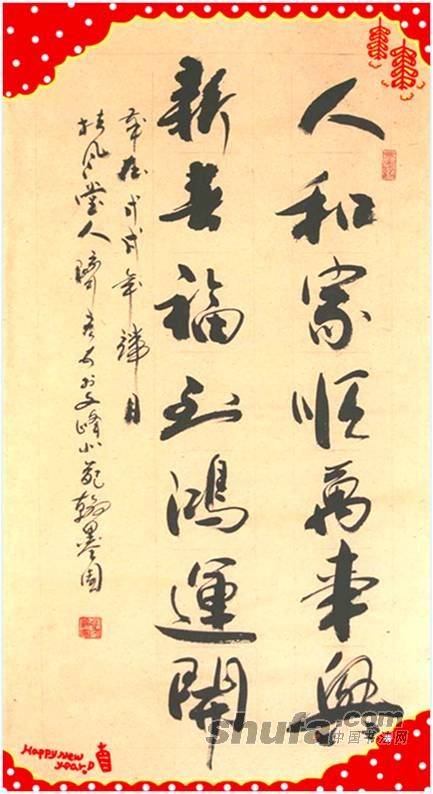 人和家順萬事興
新春福到鴻運開
歲在戊戌年臘月
扶風堂人 於文峰小苑翰墨園
shufa.com
中国书法网
Happy New
year.